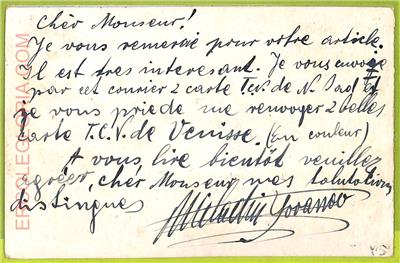 Chèr Monseur!
Je vous remercie pour votre article.
Il est tres interesant. Je vous envoye
par cet courier 2 carte T.c.v. de N. Sad et
je vous priede me renvoyer 2 belles
carte T.C.V. de Venisse. (En couleur)
A vous lire bientôt veuillez
agréer, chér Monseur mes salutations
distingues
Jovanov
EPHOLEGORIA.COM